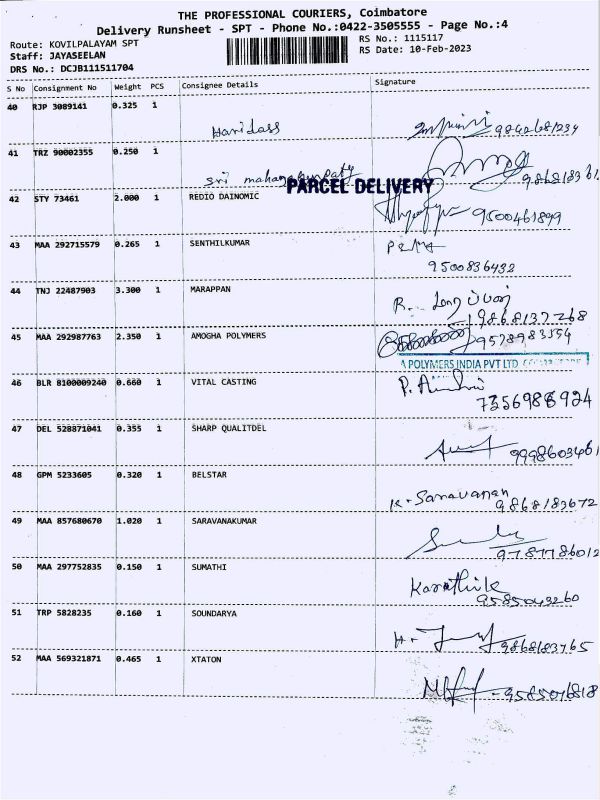 THE PROFESSIONAL COURIERS, Coimbatore
Delivery Runsheet - SPT - Phone No.:0422-3505555 - Page No.:4
Route: KOVILPALAYAM SPT
RS No.: 1115117
Staff: JAYASEELAN
RS Date: 10-Feb-2023
DRS No.: DCJB111511704
S No Consignment No Weight PCS Consignee Details Signature
40 RJP 3089141 0.325 1
Haridass
41 TRZ 90002355 0.250 1
Sri
PARCEL DELIVERY
42 STY 73461 2.000 1 REDIO DAINOMIC
9500461899
43 MAA 292715579 0.265 1 SENTHILKUMAR
9500836432
44 TNJ 22487903 3.300 1 MARAPPAN
R.
9868137268
45 MAA 292987763 2.350 1 AMOGHA POLYMERS
9578983554
POLYMERS INDIA PVT LTD
46 BLR 8100009240 0.660 1 VITAL CASTING
P.
7356986924
47 DEL 528871041 0.355 1 SHARP QUALITDEL
48 GPM 5233605 0.320 1 BELSTAR
K. Saravanan
9868183672
49 MAA 857680670 1.020 1 SARAVANAKUMAR
50 MAA 297752835 0.150 1 SUMATHI
Karathik
9585043260
51 TRP 5828235 0.160 1 SOUNDARYA
9868183765
52 MAA 569321871 0.465 1 XTATON